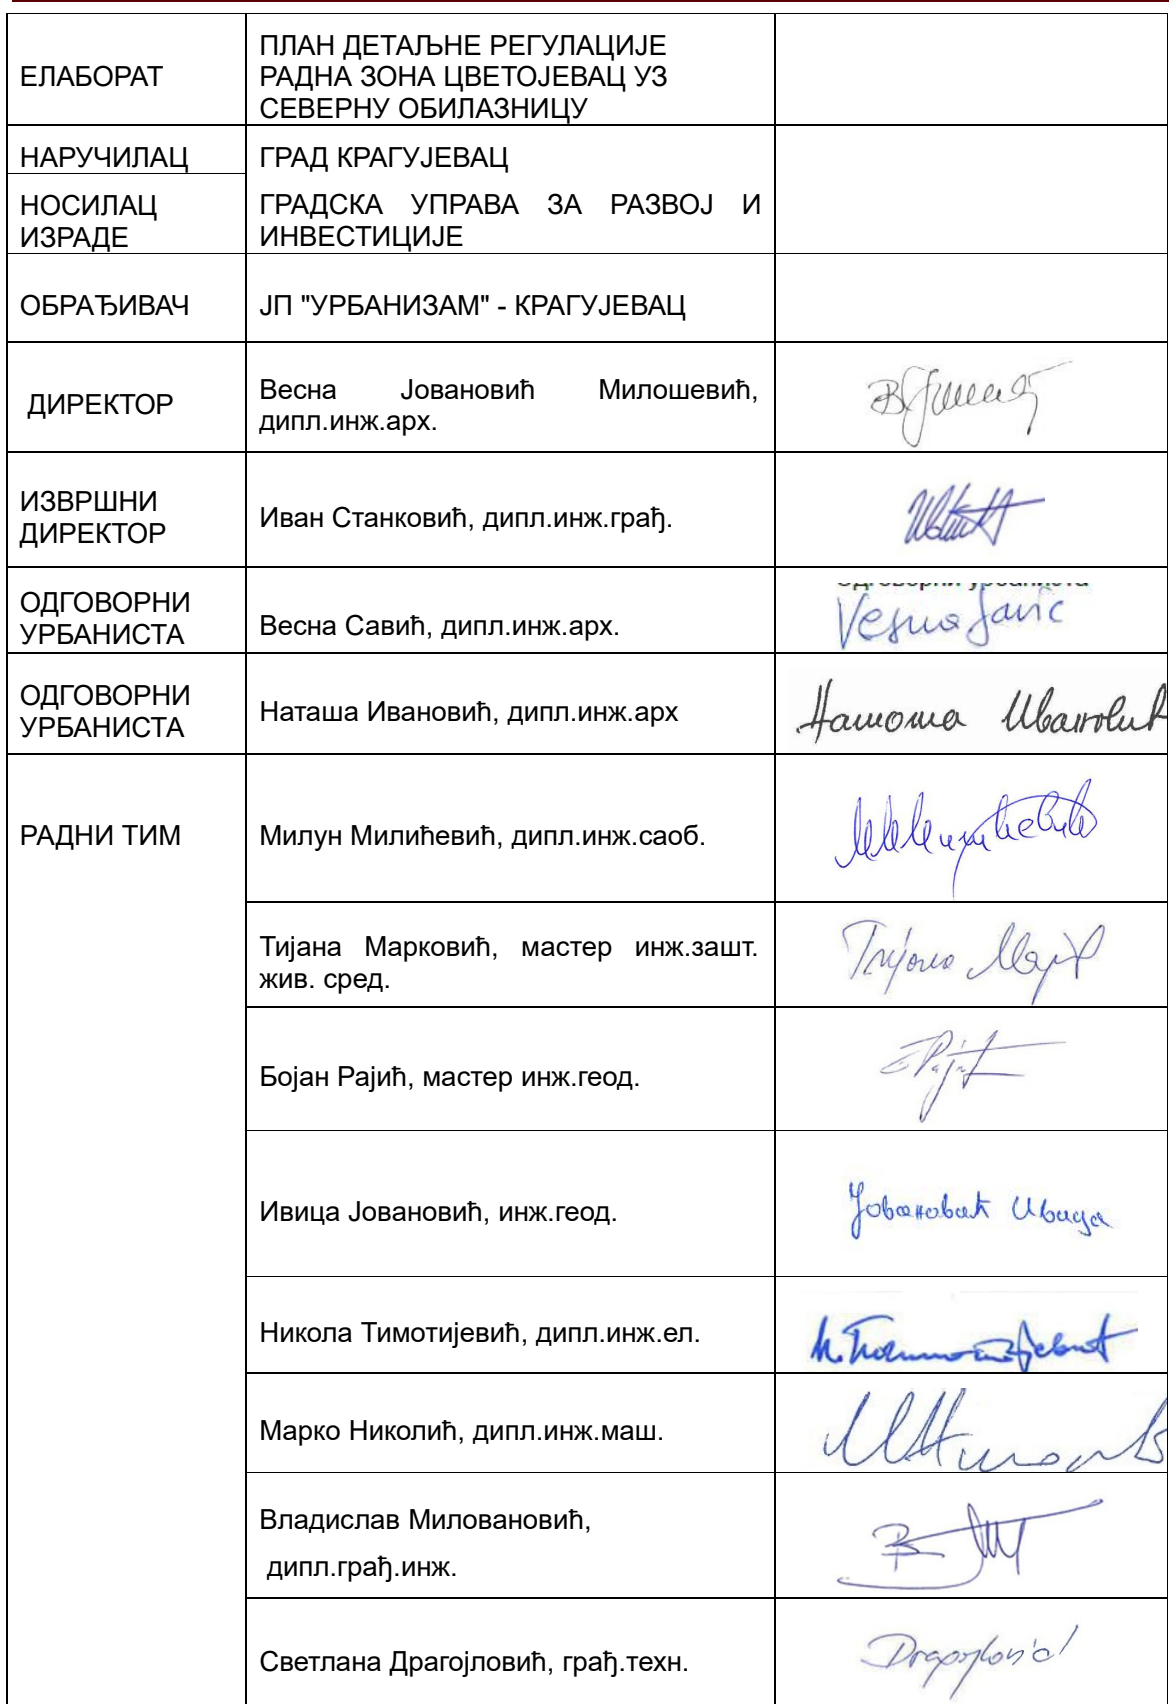 ЕЛАБОРАТ
ПЛАН ДЕТАЉНЕ РЕГУЛАЦИЈЕ
РАДНА ЗОНА ЦВЕТОЈЕВАЦ УЗ
СЕВЕРНУ ОБИЛАЗНИЦУ
НАРУЧИЛАЦ
ГРАД КРАГУЈЕВАЦ
НОСИЛАЦ
ИЗРАДЕ
ГРАДСКА УПРАВА ЗА РАЗВОЈ И
ИНВЕСТИЦИЈЕ
ОБРАЂИВАЧ
ЈП "УРБАНИЗАМ" - КРАГУЈЕВАЦ
ДИРЕКТОР
Весна Јовановић Милошевић,
дипл.инж.арх.
ИЗВРШНИ
ДИРЕКТОР
Иван Станковић, дипл.инж.грађ.
ОДГОВОРНИ
УРБАНИСТА
Весна Савић, дипл.инж.арх.
Vesna Savić
ОДГОВОРНИ
УРБАНИСТА
Наташа Ивановић, дипл.инж.арх
Наташа Ивановић
РАДНИ ТИМ
Милун Милићевић, дипл.инж.саоб.
Тијана Марковић, мастер инж.зашт.
жив. сред.
Бојан Рајић, мастер инж.геод.
Ивица Јовановић, инж.геод.
Јовановић Ивица
Никола Тимотијевић, дипл.инж.ел.
Марко Николић, дипл.инж.маш.
Владислав Миловановић,
дипл.грађ.инж.
Светлана Драгојловић, грађ.техн.